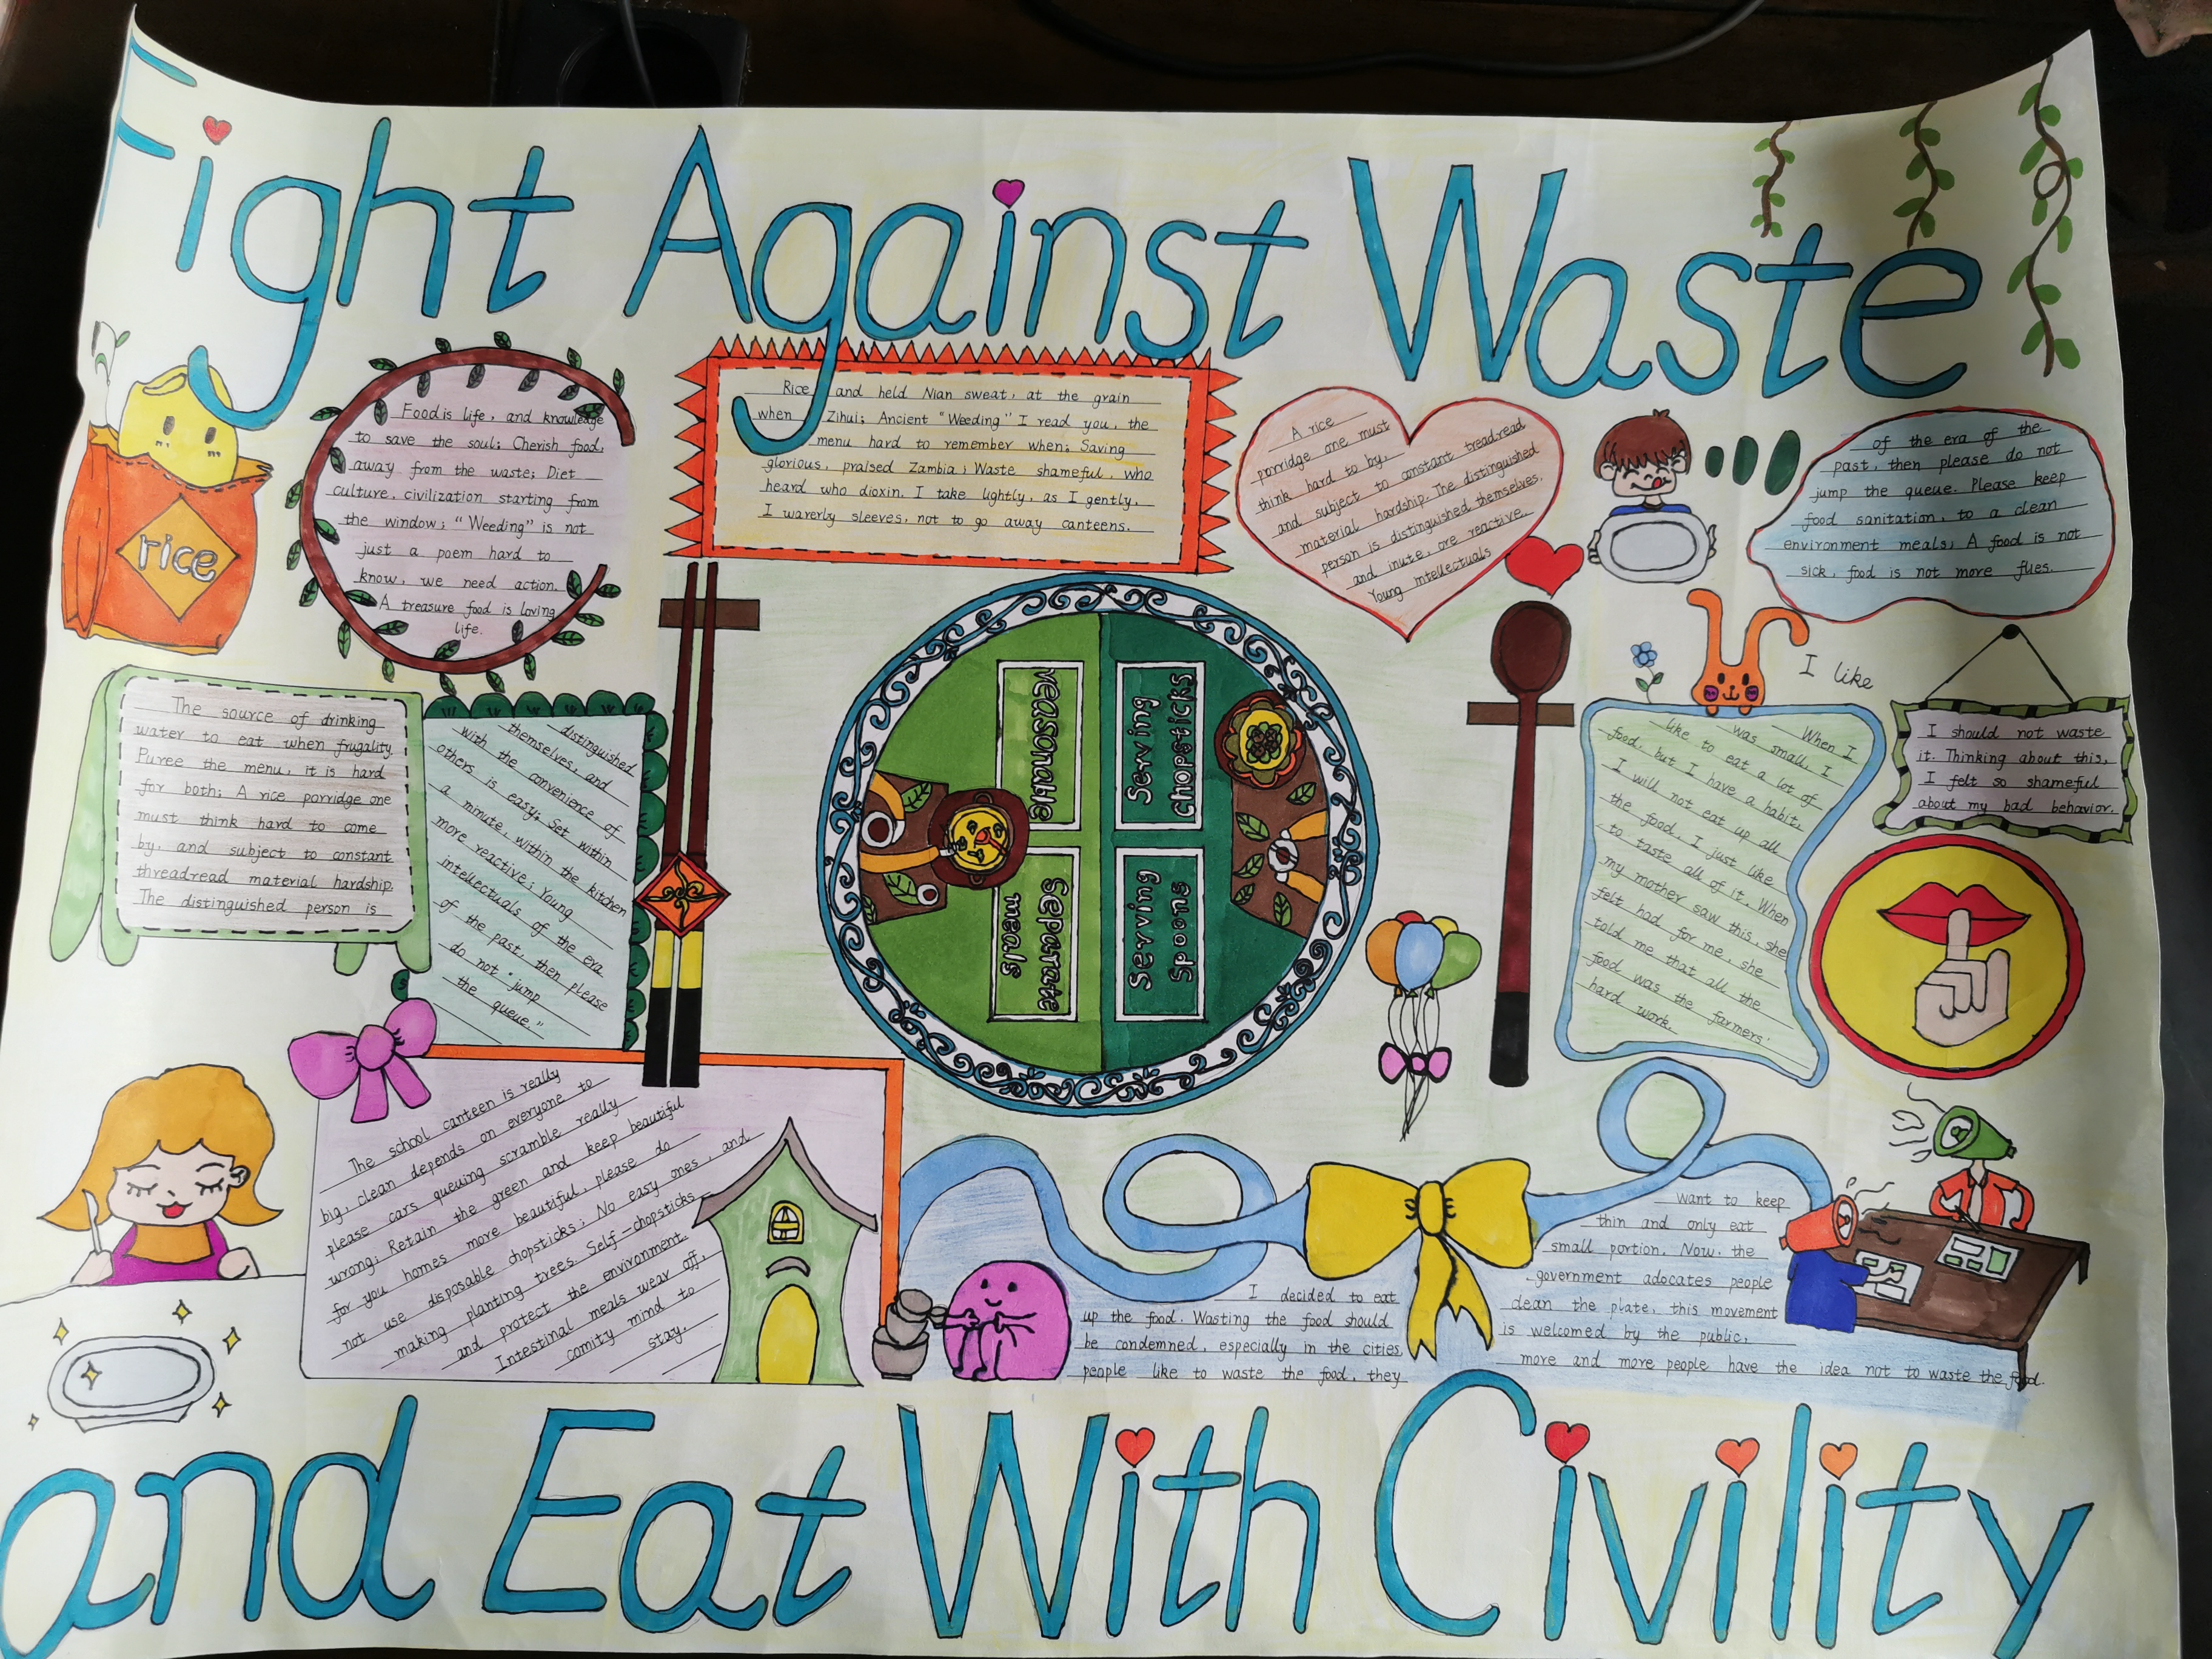 Fight Against Waste
rice
Food is life, and knowledge
to save the soul; Cherish food,
away from the waste; Diet
culture, civilization starting from
the window; "Weeding" is not
just a poem hard to
know, we need action.
A treasure food is loving
life.
Rice and held Nian sweat, at the grain
when Zihui; Ancient "Weeding" I read you, the
menu hard to remember when; Saving
glorious, praised Zambia; Waste shameful, who
heard who dioxin. I take lightly, as I gently,
I waverly sleeves, not to go away canteens.
A rice
porridge one must
think hard to by,
and subject to constant treadread
material hardship. The distinguished
person is distinguished themselves,
and inute, ore reactive.
Young mtellectuals
of the era of the
past, then please do not
jump the queue. Please keep
food sanitation, to a clean
environment meals; A food is not
sick, food is not more flies.
The source of drinking
water to eat when frugality
Puree the menu, it is hard
for both; A rice porridge one
must think hard to come
by, and subject to constant
threadread material hardship.
The distinguished person is
distinguished
themselves, and
with the convenience of
others is easy; Set within
a minute, within the kitchen
more reactive; Young
intellectuals of the era
of the past, then please
do not "jump
the queue."
reasonable
Separate
meals
Serving
chopsticks
Serving
Spoons
I like
When I
was small, I
like to eat a lot of
food, but I have a habit,
I will not eat up all
the food, I just like
to taste all of it. When
my mother saw this, she
felt had for me, she
told me that all the
food was the farmers'
hard work.
I should not waste
it. Thinking about this,
I felt so shameful
about my bad behavior.
The school canteen is really
big, clean depends on everyone to
please cars queuing scramble really
wrong; Retain the green and keep beautiful
for you homes more beautiful, please do
not use disposable chopsticks; No easy ones, and
making planting trees. Self-chopsticks
and protect the environment.
Intestinal meals wear off,
comity mind to
stay.
I decided to eat
up the food. Wasting the food should
be condemned, especially in the cities
people like to waste the food, they
want to keep
thin and only eat
small portion. Now. the
government adocates people
clean the plate, this movement
is welcomed by the public,
more and more people have the idea not to waste the food.
and Eat With Civility